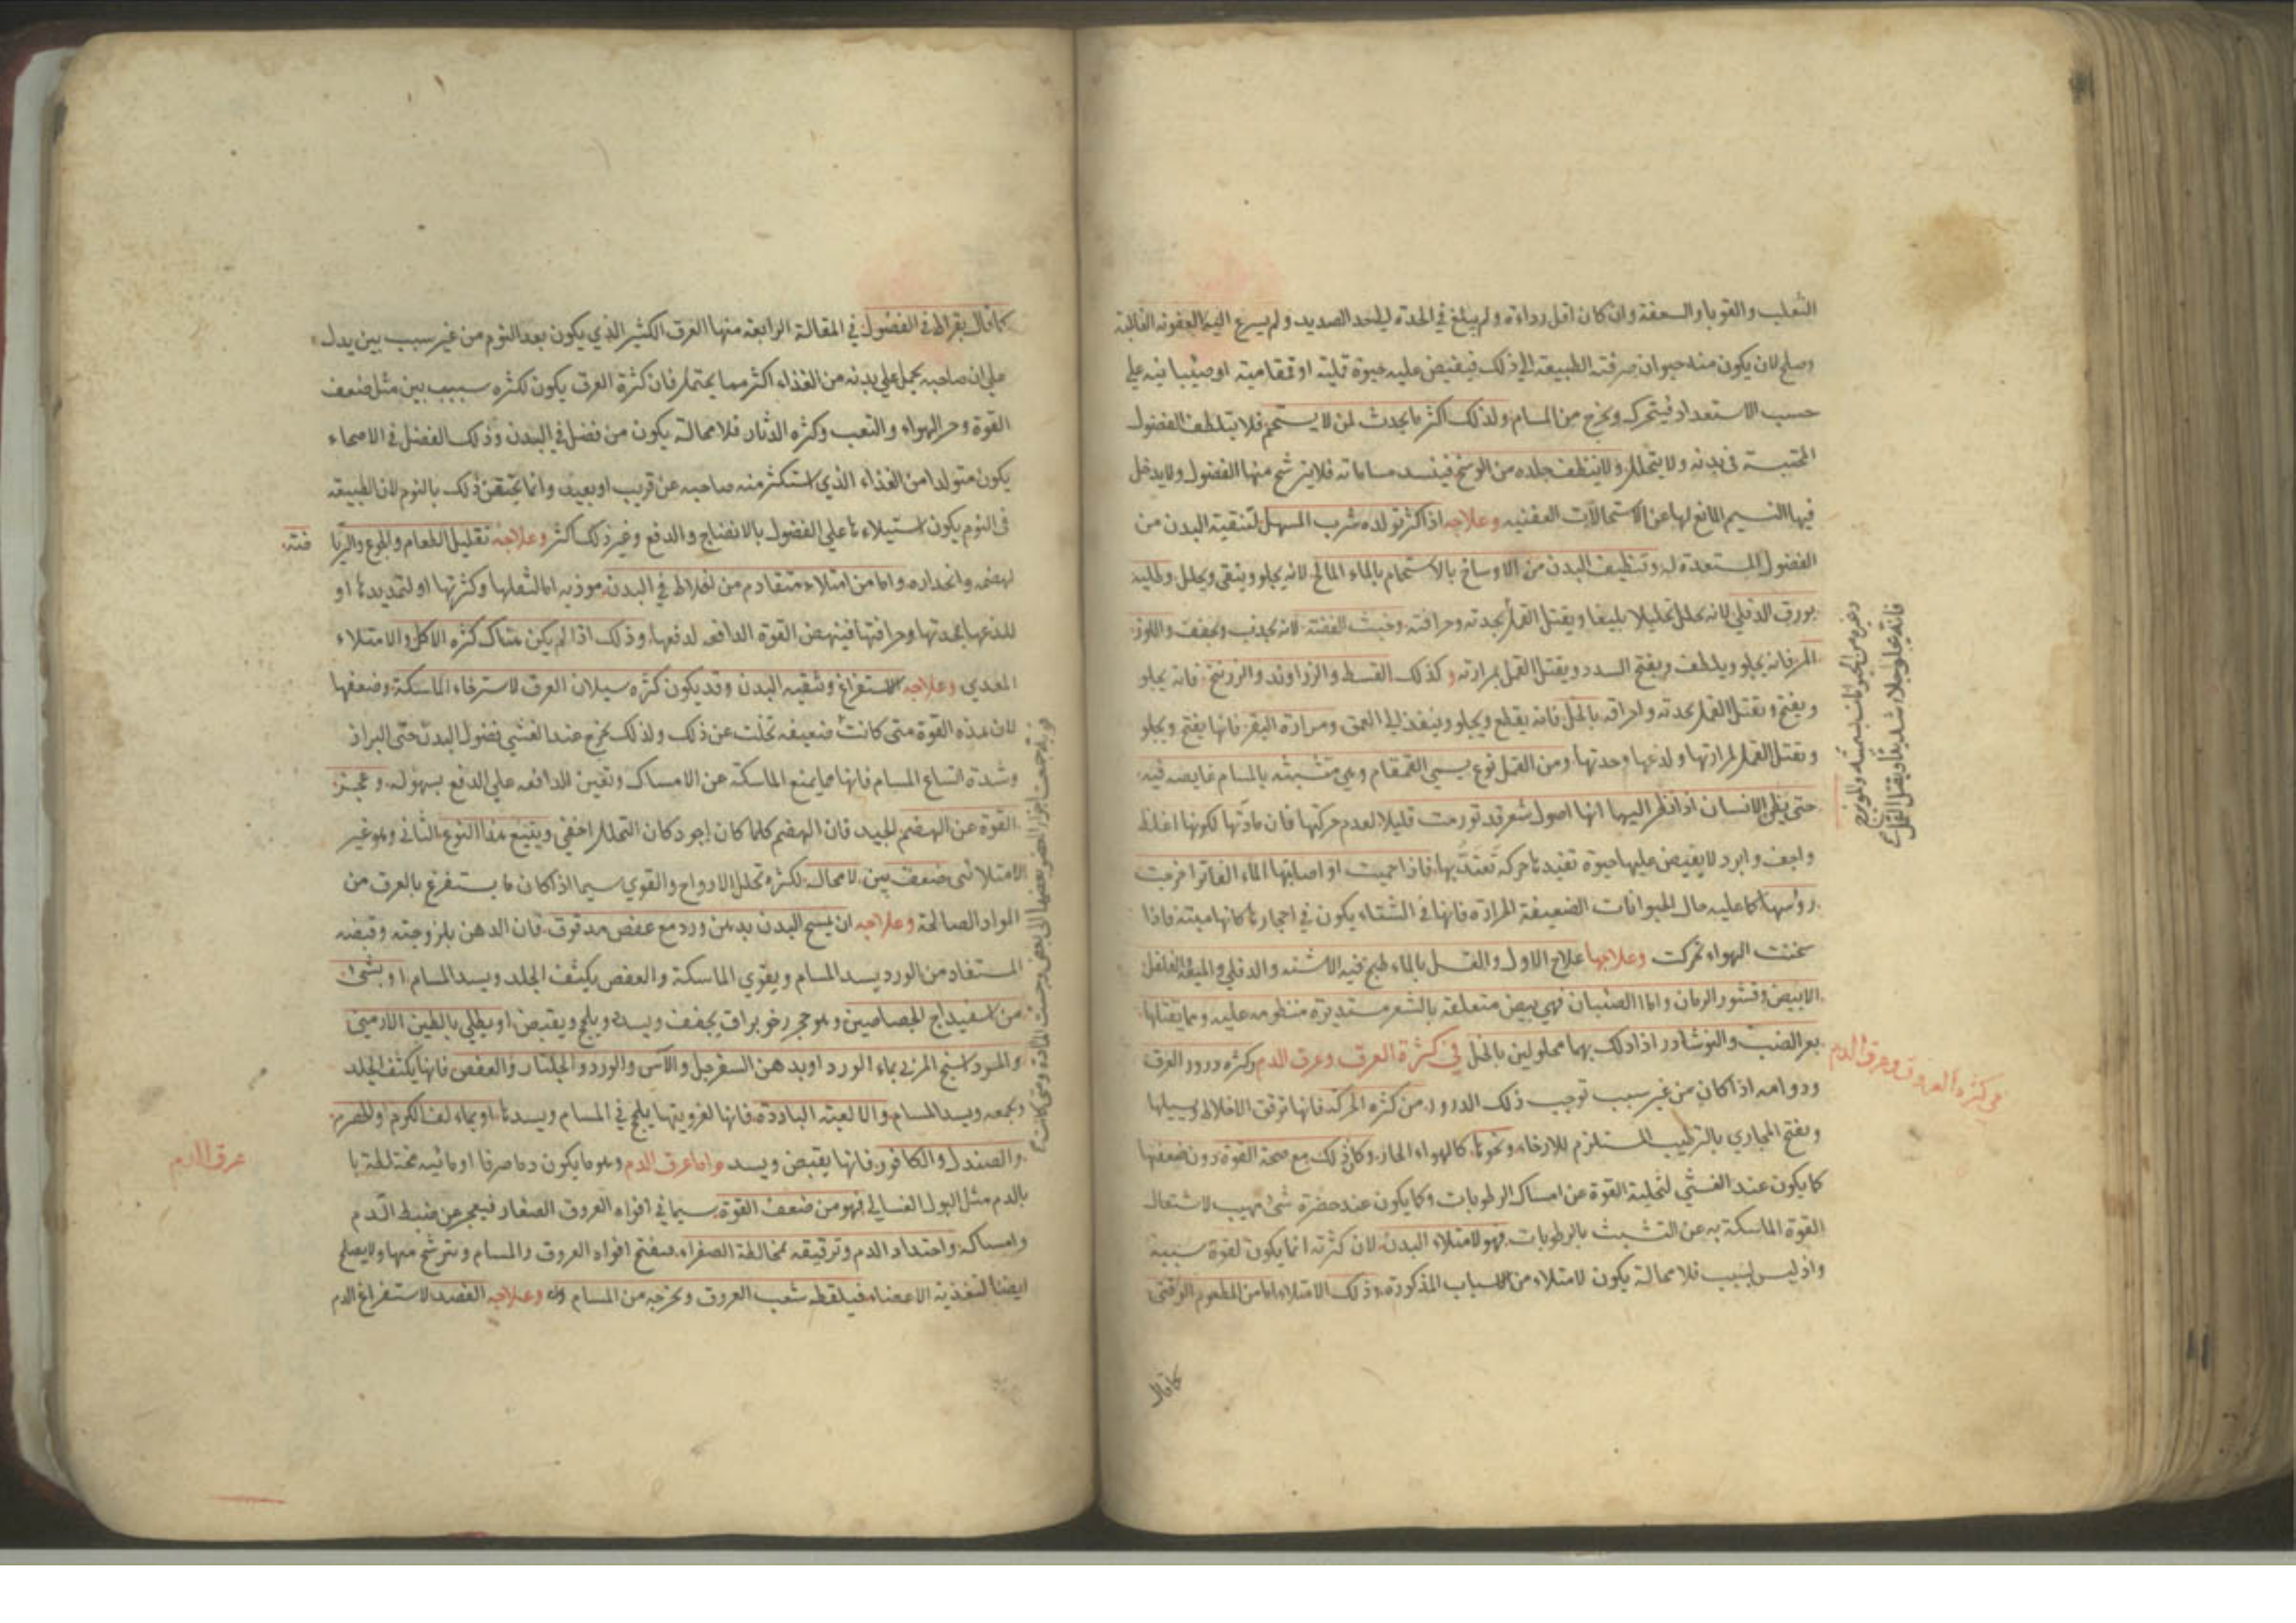 الثعلب والقوبا والسعفة وان كان اقل رداءة ولم يبلغ في الحدة الى حد الصديد ولم يسرع اليها العفونة الغالبة
وصلح لان يكون منه حيوان صرفته الطبيعة الى ذلك فيفيض عليه حيوة قملية او قمقامية او صئبانية على
حسب الاستعداد فيتحرك ويخرج من المسام ولذلك اكثر ما يحدث لمن لا يستحم فلا يتلطف الفضول
المحتبسة في بدنه ولا يتحلل ولا ينظف جلده من الوسخ فينسد مساماته فلا يترشح منها الفضول ولا يدخل
فيها النسيم المانع لها عن الاستحالات العفنيه وعلاجه اذا كثر تولده شرب المسهل لتنقية البدن من
الفضول المستعدة له وتنظيف البدن من الاوساخ بالاستحمام بالماء المالح لانه يجلو وينقى ويحلل وطليه
بورق الدفلى لانه يحلل تحليلا بليغا ويقتل القمل بحدته وحرافته وخبث الفضة لانه يجذب ويجفف واللوز
المر فانه يجلو ويلطف ويفتح السدد ويقتل القمل بمرارته وكذلك القسط والزراوند والزرنيخ فانه يجلو
ويفتح ويقتل القمل بحدته واحراقه بالخل فانه يقطع ويجلو وينفذ الى العمق ومرارة البقر فانها يفتح ويجلو
ويقتل القمل لمرارتها ولذعها وحدتها ومن القمل نوع يسمى القمقام وهي متشبثه بالمسام غايصه فيه
حتى يظن الانسان اذا نظر اليها انها اصول شعر قد تورمت قليلا لعدم حركتها فان مادتها لكونها اغلظ
واجف وابرد لا يفيض عليها حيوة تفيدها حركة تعتد بها فاذا حميت او اصابتها الماء الفاتر اخرجت
روسها كما عليه حال الحيوانات الضعيفة المرارة فانها في الشتاء يكون في احجارها كانها ميتة فاذا
سخنت الهواء تحركت وعلاجها علاج الاول والغسل بالماء طبخ فيه الاشنه والدفلى والميعة الفلفل
الابيض وقشور الرمان واما الصئبان فهي بيض متعلقة بالشعر مستديرة منظومه عليه ومما يقتلها
بعر الضب والنوشادر اذا دلك بهما محلولين بالخل في كثرة العرق وعرق الدم وكثره درور العرق
ودوامه اذا كان من غير سبب توجب ذلك الدرور من كثره الحركة فانها ترقق الاخلاط ويسيلها
ويفتح المجاري بالترطيب المستلزم للارخاء ونحوها كالهواء الحار وكان ذلك مع صحة القوة دون ضعفها
كما يكون عند الغشي لتخلية القوة عن امساك الرطوبات وكما يكون عند حضرة شئ مهيب لاشتعال
القوة الماسكة به عن التشبث بالرطوبات فهو لامتلاء البدن لان كثرته انما يكون لقوة سببه
واذ ليس لسبب فلا محالة يكون لامتلاء من الاسباب المذكورة وذلك الامتلاء اما من المطعوم الوقتي
وغيره من الحيوانات بسميته والمويزج
فانه يجلو جلاء شديدا ويقتل القمل
في كثرة العرق وعرق الدم
كما قال
كما قال بقراط في الفصول في المقالة الرابعة منها العرق الكثير الذي يكون بعد النوم من غير سبب بين يدل
على ان صاحبه يحمل على بدنه من الغذاء اكثر مما يحتمل فان كثرة العرق يكون لكثره سبب بين مثل ضعف
القوة وحر الهواء والتعب وكثره الدثار فلا محالة يكون من فضل في البدن وذلك الفضل في الاصحاء
يكون متولدا من الغذاء الذي استكثر منه صاحبه عن قريب او بعيد وانما يختص ذلك بالنوم لان الطبيعة
في النوم يكون استيلاءها على الفضول بالانضاج والدفع وغير ذلك اكثر وعلاجه تقليل الطعام والجوع والريا
ضة
لهضمه وانحداره واما من امتلاء متقادم من اخلاط في البدن موذيه اما لثقلها وكثرتها او لتمديدها او
للذعها بحدتها وحرافتها فينهض القوة الدافعه لدفعها وذلك اذا لم يكن هناك كثره الاكل والامتلاء
المعدي وعلاجه الاستفراغ وتنقيه البدن وقد يكون كثره سيلان العرق لاسترخاء الماسكة وضعفها
لان هذه القوة متى كانت ضعيفه تخلت عن ذلك ولذلك يخرج عند الغشي فضول البدن حتى البراز
وشدة اتساع المسام فانها مما يمنع الماسكة عن الامساك وتعين الدافعه على الدفع بسهوله وعجز
القوة عن الهضم الجيد فان الهضم كلما كان اجود كان التحلل اخفى ويتبع هذا النوع الثاني وهو غير
الامتلائي ضعف بين لا محالة لكثرة تحلل الارواح والقوي سيما اذا كان ما يستفرغ بالعرق من
المواد الصالحة وعلاجه ان يمسح البدن بدهن ورد مع عفص مدقوق فان الدهن بلزوجته وقبضه
المستفاد من الورد يسد المسام ويقوي الماسكة والعفص يكثف الجلد ويسد المسام او بشئ
من اسفيداج الجصاصين وهو حجر رخو براق يجفف ويسد ويلحج ويقبض او يطلى بالطين الارمني
والمرداسنج المربى بماء الورد او بدهن السفرجل والآس والورد والجلنار والعفص فانها يكثف الجلد
ويجمعه ويسد المسام والالعبه الباردة فانها لغرويتها يلحج في المسام ويسدها او بماء لف الكرم والحصرم
والصندل والكافور فانها يقبض ويسد واما عرق الدم وهو ما يكون دما صرفا او مائيه مختلطة با
بالدم مثل البول الغسالي فهو من ضعف القوة سيما في افواه العروق الصغار فيعجز عن ضبط الدم
وامساكه واحتداد الدم وترقيقه بمخالطة الصفراء فيفتح افواه العروق والمسام ويترشح منها ولا يصلح
ايضا لتغذية الاعضاء فيلقطه شعب العروق وتخرجه من المسام وعلاجه الفصد لاستفراغ الدم
عرق الدم